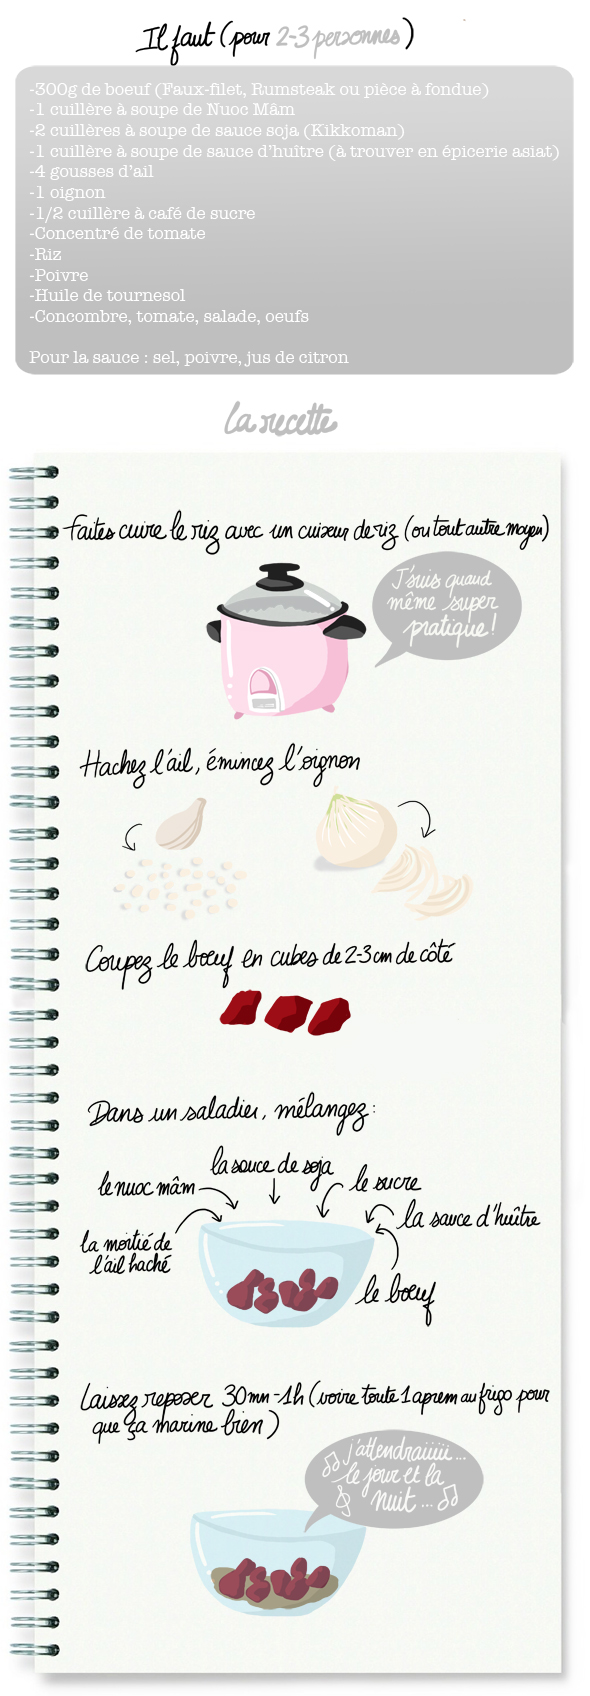 Il faut (pour 2-3 personnes)
-300g de boeuf (Faux-filet, Rumsteak ou pièce à fondue)
-1 cuillère à soupe de Nuoc Mâm
-2 cuillères à soupe de sauce soja (Kikkoman)
-1 cuillère à soupe de sauce d'huître (à trouver en épicerie asiat)
-4 gousses d'ail
-1 oignon
-1/2 cuillère à café de sucre
-Concentré de tomate
-Riz
-Poivre
-Huile de tournesol
-Concombre, tomate, salade, oeufs
Pour la sauce : sel, poivre, jus de citron
la recette
Faites cuire le riz avec un cuiseur de riz (ou tout autre moyen)
J'suis quand
même super
pratique !
Hachez l'ail, émincez l'oignon
Coupez le bœuf en cubes de 2-3cm de côté
Dans un saladier, mélangez :
la sauce de soja
le nuoc mâm
le sucre
la sauce d'huître
la moitié de
l'ail haché
le bœuf
Laissez reposer 30mn-1h (voire toute 1 aprem au frigo pour
que ça marine bien)
j'attendraiiiii...
le jour et la
nuit...